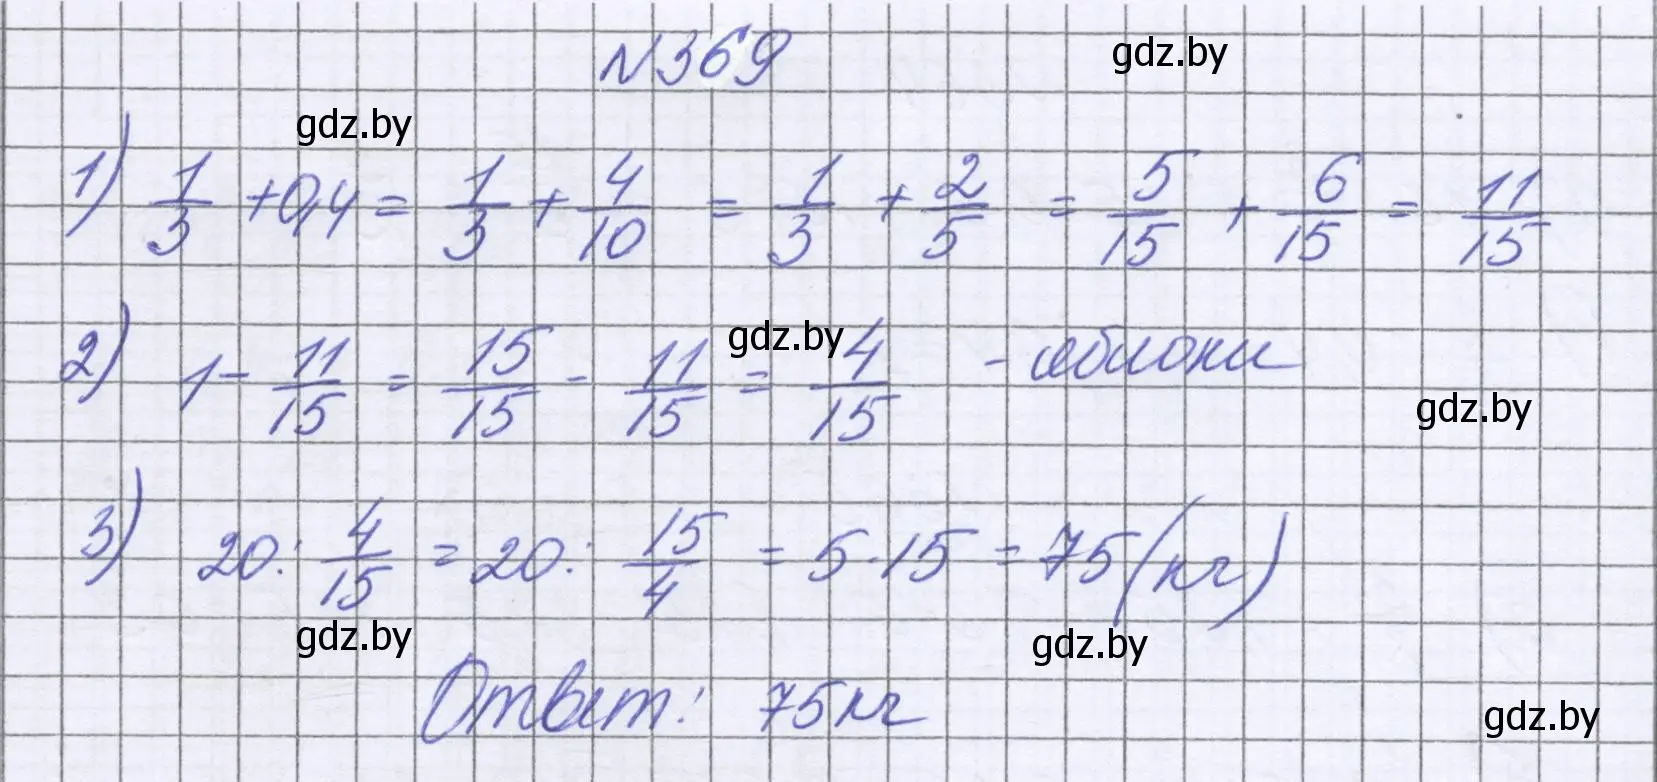 N369 gdz.by
gdz.by
1) 1/3 + 0,4 = 1/3 + 4/10 = 1/3 + 2/5 = 5/15 + 6/15 = 11/15
2) 1 - 11/15 = 15/15 - 11/15 = 4/15 - яблоки
gdz.by
gdz.by
3) 20 : 4/15 = 20 : 15/4 = 5 · 15 = 75 (кг)
gdz.by gdz.by
Ответ: 75 кг
gdz.by